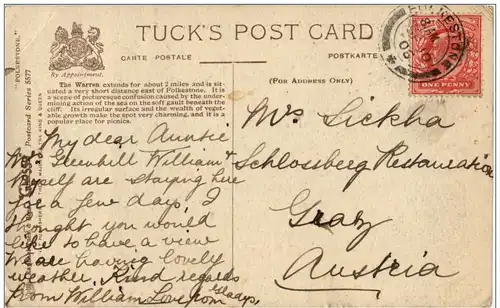 TUCK'S POST CARD
CARTE POSTALE
POSTKARTE
(FOR ADDRESS ONLY)
By Appointment.
The Warren extends for about 2 miles and is sit-
uated a very short distance east of Folkestone. It
is a scene of picturesque confusion caused by the under-
mining action of the sea on the soft gault beneath the
cliff. Its irregular surface and the wealth of veget-
able growth make the spot very charming, and it is a
popular place for picnics.
"FOLKESTONE."
Postcard Series 5577
FOLKESTONE
ONE PENNY
My dear Auntie
Mr Greenhill William &
Myself are staying here
for a few days. I
thought you would
like to have a view
We are having lovely
weather. Kind regards
from William Love from Gladys.
Mrs Sickha
Schlossberg Restauration
Graz
Austria